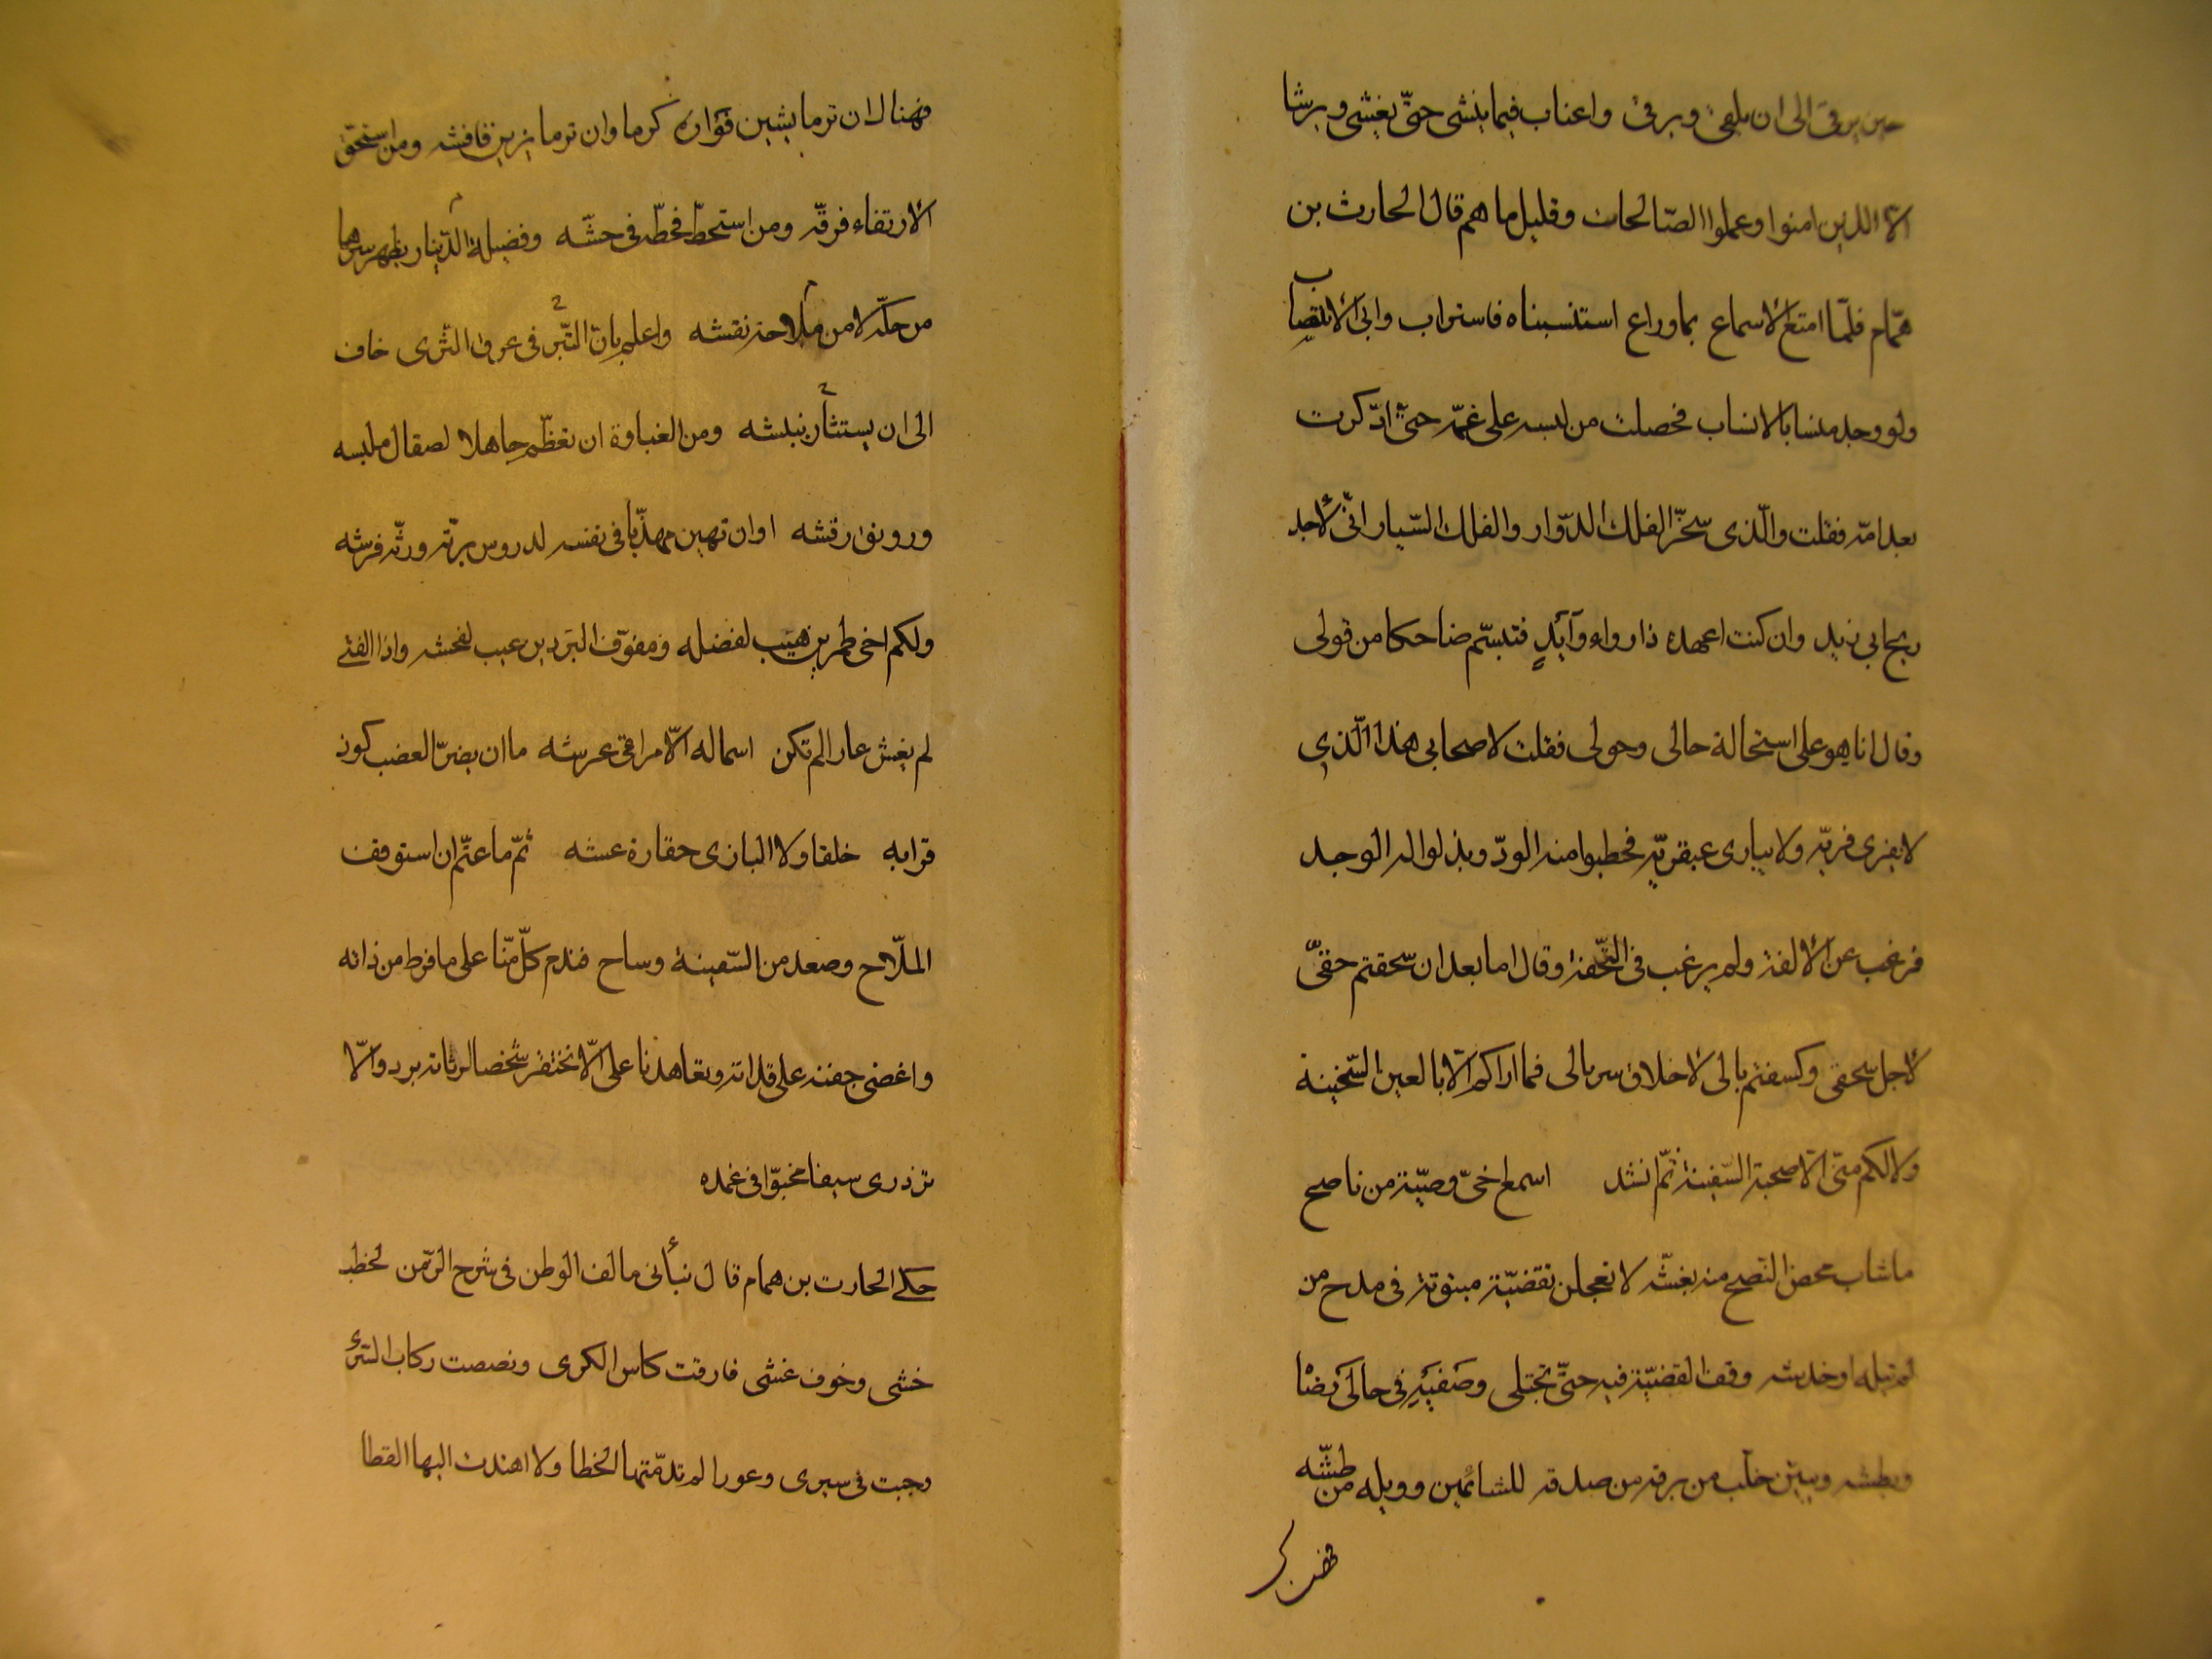 حين يرقى الى ان يلقى ويرقى واعتاب فيما ينشى حتى يغشى ويرشا
الا الذين امنوا وعملوا الصّالحات وقليل ما هم قال الحارث بن
همّام فلمّا امتع الاسماع بما وراع استنسبناه فاستراب وابى الانتصاب
ولو وجد منسابا لانساب فحصلت من لبسه على غمّة حتّى ادّكرت
بعد امّة فقلت والّذى سخّر الفلك الدوّار والفلك السّيار انّى لاجد
ريح ابى زيد وان كنت اعهده ذا رواء وآيدٍ فتبسّم ضاحكا من قولى
وقال انا هو على استحالة حالى وحولى فقلت لاصحابى هذا الّذى
لا يفرى فريّه ولا يبارى عبقريّه فخطبوا منه الودّ وبذلوا له الوجد
فرغب عن الالفة ولم يرغب فى التّحفة وقال اما بعد ان سحقتم حقىّ
لاجل سحقى وكسفتم بالى لاخلاق سربالى فما اراكم الّا بالعين السّخينة
ولا لكم منّى الّا صحبة السّفينة ثمّ انشد اسمع اخىّ وصيّة من ناصح
ما شاب محض النّصح منه بغشّه لا تعجلن بقضيّة مبتوتة فى مدح من
لم تبله او خدشه وقف القضيّة فيه حتّى تجتلى وصفيه فى حالى رضا
وبطشه ويبين خلّب من برقه من صدقه للشائمين ووبله من طشّه
فهناك
فهناك ان تر ما يشين فواره كرما وان تر ما يزين فافشه ومن استحقّ
الارتقاء فرقّه ومن استحطّ فحطّه فى حشّه وفضيلة الدّينار يظهر سرها
من حكّه لا من ملاحة نقشه واعلم بان التّبر فى عرق الثّرى خاف
الى ان يستثار بنبشه ومن الغباوة ان تعظّم جاهلا لصقال ملبسه
ورونق رقشه او ان تهين مهذّبا فى نفسه لدروس بزّته ورثّة فرشه
ولكم اخى طمرين هيب لفضله ومفوّف البردين عيب لفحشه واذا الفتى
لم يغش عارا لم تكن اسماله الّا مراقى عرشه ما ان يضرّ العضب كون
قرابه خلقا ولا البازى حقارة عشه ثمّ ما عتّم ان استوقف
الملّاح وصعد من السّفينة وساح فندم كلّ منّا على ما فرط من ذاته
واغضى جفنه على قذاته وتعاهدنا على الّا نحتقر شخصا لرثاثة برد والّا
نزدرى سيفا مخبوّا فى غمده
حكى الحارث بن همام قال نبأنى مألف الوطن فى شرح الزّمن لخطب
خشى وخوف غشى فارقت كاس الكرى ونصصت ركاب السّرى
وجبت فى سيرى وعورا لم تدمّثها الخطا ولا اهتدت اليها القطا